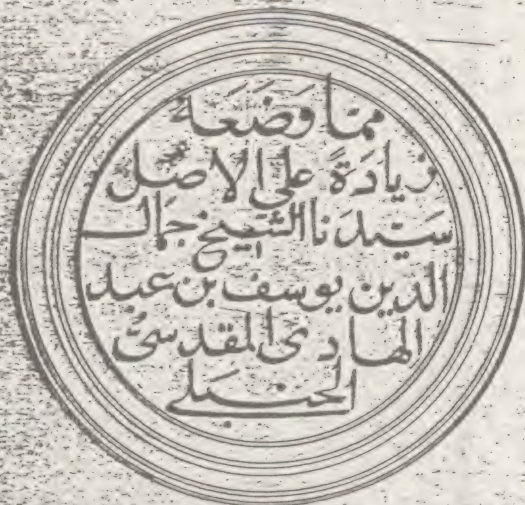 مما وضعه
زيادة على الاصل
سيدنا الشيخ جمال
الدين يوسف بن عبد
الهادى المقدسى
الحنبلى